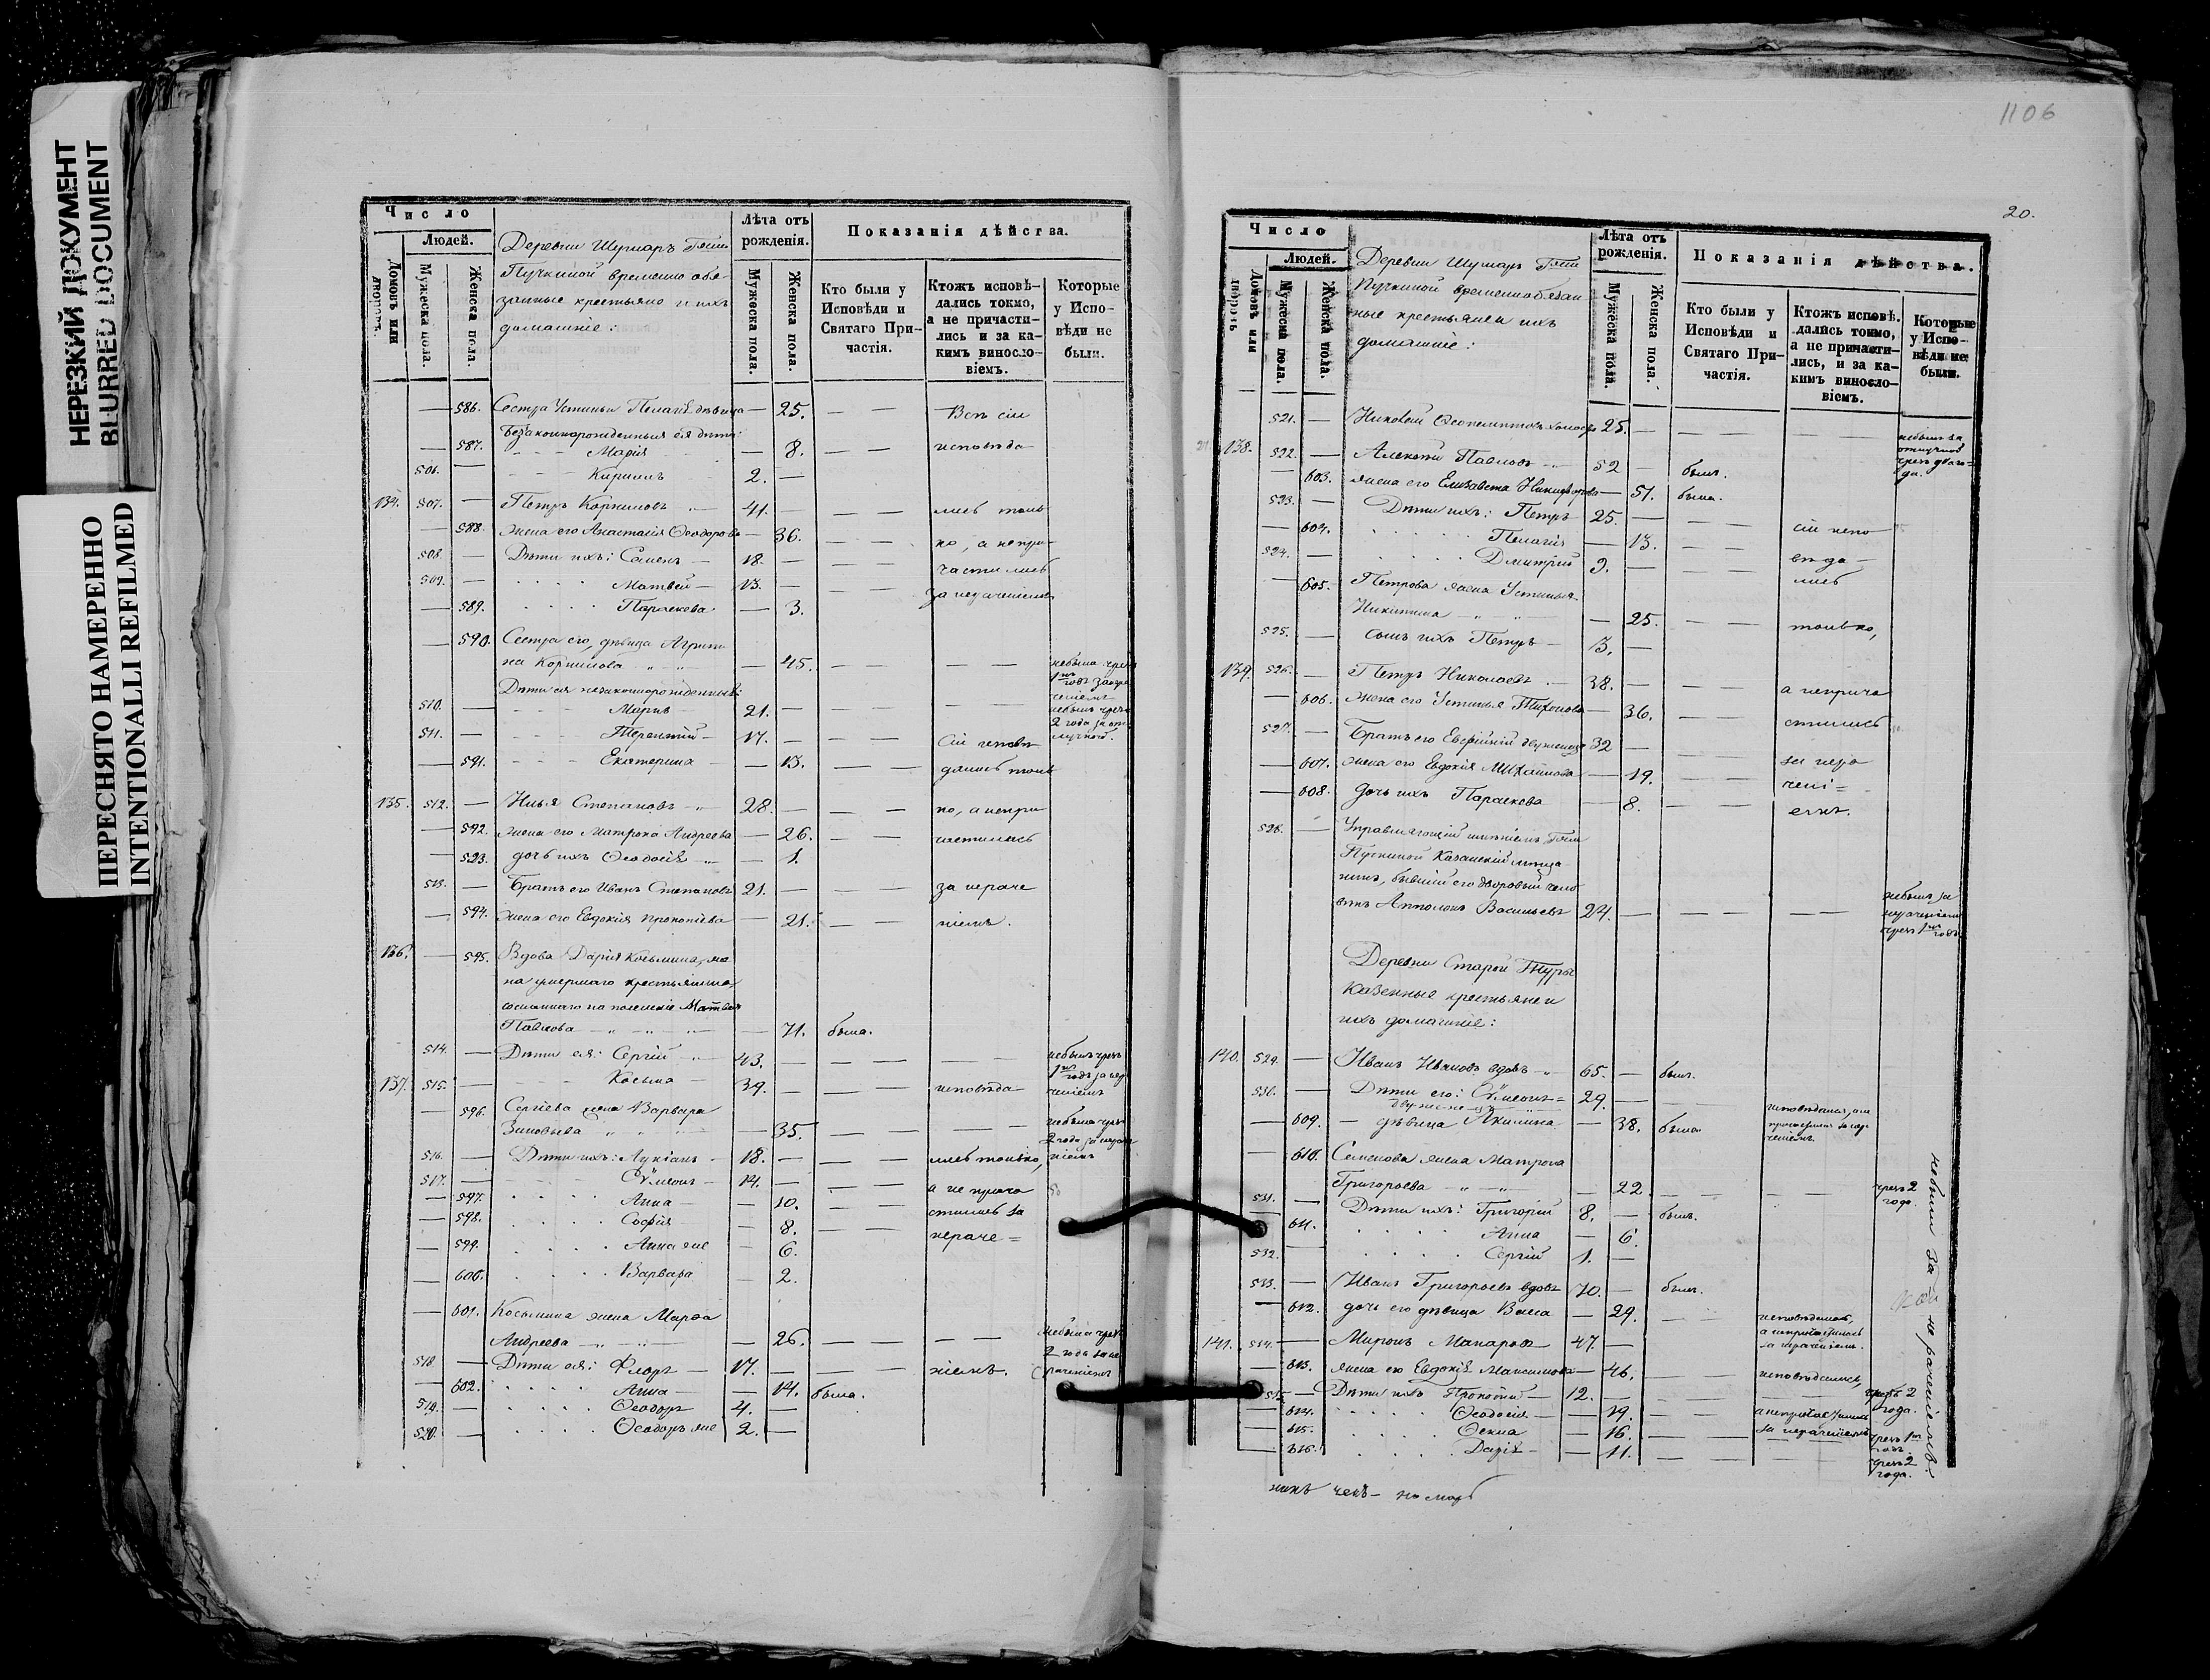 НЕРЕЗКИЙ ДОКУМЕНТ
BLURRED DOCUMENT
ПЕРЕСНЯТО НАМЕРЕННО
INTENTIONALLI REFILMED
Число
Домовъ или дворовъ.
Людей.
Мужеска пола.
Женска пола.
Деревни Шурмаръ Гжи
Пучкиной временно обя-
занные крестьяно и ихъ
домашніе:
Лѣта отъ рожденія.
Мужеска пола.
Женска пола.
Показанія дѣйства.
Кто были у Исповѣди и Святаго При-частія.
Ктожъ исповѣ-дались токмо, а не причасти-лись и за ка-кимъ винословіемъ.
Которые у Испо-вѣди не были.
— 586. Сестра Устиньи Пелагія дѣвица — 25. — — Всѣ сіи
Безаконнорожденныя ея дѣти:
— 587. Марія — 8. — исповѣда
506. — Кириллъ 2. —
134. 507. — Петръ Корниловъ 41. — — — лись толь
— 588. Жена его Анастасія Ѳеодорова — 36. — — ко, а непри-
508. — Дѣти ихъ: Семенъ — 18. — — — частились
509. — Матвей — 13. — — — за нераченіемъ
— 589. Параскева — 3.
— 590. Сестра его, дѣвица Агрипи
на Корнилова — 45. — — — — небыла чрезъ
1 годъ за нера
ченіемъ
Дѣти ея незаконнорожденныя:
510. — Маркъ — 21. — — — небылъ чрезъ
2 года за от
лучкой.
511. — Терентій — 17. — — — Сіи исповѣ
— 591. Екатерина — — 13. — — дались толь
135. 512. — Илья Степановъ 28. — — — ко, а непри
— 592. Жена его Матрона Андреева — 26. — — частились
— 593. дочь ихъ Ѳеодосія — 1.
513. — Братъ его Иванъ Степановъ 21. — — — за нераче
— 594. Жена его Евдокія Прокопіева — 21. — — ніемъ.
136. — 595. Вдова Дарія Косьмина, же
на умершаго крестьянина,
сосланнаго на поселеніе Матвея
Павлова — 71. была.
514. — Дѣти ея: Сергій 43. — — — — — небылъ чрезъ
1 годъ за нера
ченіемъ
137. 515. — Косьма — 39. — — — исповѣда
— 596. Сергіева жена Варвара
Зиновьева — 35. — — — — небыла чрезъ
2 года за нераче
ніемъ
516. — Дѣти ихъ: Лукіанъ — 18. — — — лись только,
517. — Сѵмеонъ — 14. — — — а не прича
— 597. Анна — — 10. — — стились за
— 598. Софія — 8. — — нераче=
— 599. Анна же — 6.
— 600. Варвара — 2.
— 601. Косьмина жена Марѳа
Андреева — 26. — — — — небыла чрезъ
2 года за не
раченіемъ
518. — Дѣти ея: Флоръ — 17. — — — ніемъ.
— 602. Анна — — 14. была.
519. — Ѳеодоръ 4. —
520. — Ѳеодоръ же 2. —
1106
20.
Число
Домовъ или дворовъ
Людей.
Мужеска пола.
Женска пола.
Деревни Шурмаръ Гжи
Пучкиной временнообязан
ные крестьяне и ихъ
домашніе:
Лѣта отъ рожденія.
Мужеска пола.
Женска пола.
Показанія дѣйства.
Кто были у Исповѣди и Святаго При-частія.
Ктожъ исповѣ-дались токмо, а не причасти-лись, и за ка-кимъ винословіемъ.
Которые у Испо-вѣди не были.
521. — 25. — — — — — небылъ за
отлучкой
чрезъ два го=
да.
138. 522. — Алексѣй Павловъ 52 — былъ.
— 603. жена его Елизавета Никифорова — 51. была.
523. — Дѣти ихъ: Петръ 25. — — —
— 604. Пелагія — 13. — — сіи испо
524. — Дмитрій 9. — — — вѣда-
— 605. Петрова жена Устинья лись
Никитина — 25. — — только,
525. — сынъ ихъ Петръ — 3. —
139. 526. — Петръ Николаевъ 38. — — — а неприча
— 606. Жена его Устинья Тихонова — 36. — — стились
527. — Братъ его Евфимій 32 — — — за нера
— 607. Жена его Евдокія Михайлова — 19. — — чені=
— 608. дочь ихъ Параскева — 8. — — емъ.
528. — Управляющій имѣніемъ Гжи
Пучкиной Казанскій мѣща
нинъ, бывшій его дворовый чело
вѣкъ Апполонъ Васильевъ 24. — — — — — небылъ за
нераченіемъ
чрезъ 1 годъ
Деревни Старой Туры
Казенные крестьяне и
ихъ домашніе:
140. 529. — Иванъ Ивановъ вдовъ 65. — былъ.
530. — Дѣти его: Сѵмеонъ= 29. — — — исповѣдался, а не
причастился за нера
ченіемъ.
— 609. — дѣвица Акилина — 38. была.
— 610. Семенова жена Матрона
Григорьева — 22. — — — — чрезъ 2
года.
531. — Дѣти ихъ: Григорій 8. — былъ.
— 611. Анна — 6.
532. — Сергій 1. —
533. — Иванъ Григорьевъ вдовъ 70. — былъ.
— 612. дочь его дѣвица Васса — 29. — — исповѣдалась,
а непричастилась
за нераченіемъ.
141. 534. — Миронъ Макаровъ 47. —
— 613. жена его Евдокія Максимова — 46. — — исповѣдались,
535. — Дѣти ихъ Прокопій — 12. — — — чрезъ 2
года.
— 614. Ѳеодосія — — 19. — — а непричастились
— 615. Ѳекла — 16. — — за нераченіемъ чрезъ 1
годъ
— 616. Дарія — — 11. — — — — чрезъ 2
года.
небыли за не раченіемъ.